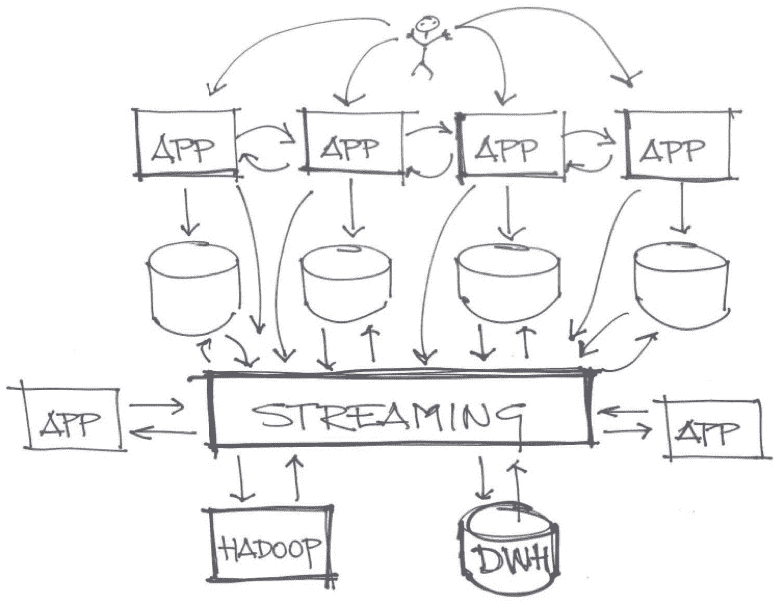 APP APP APP APP
APP STREAMING APP
HADOOP DWH